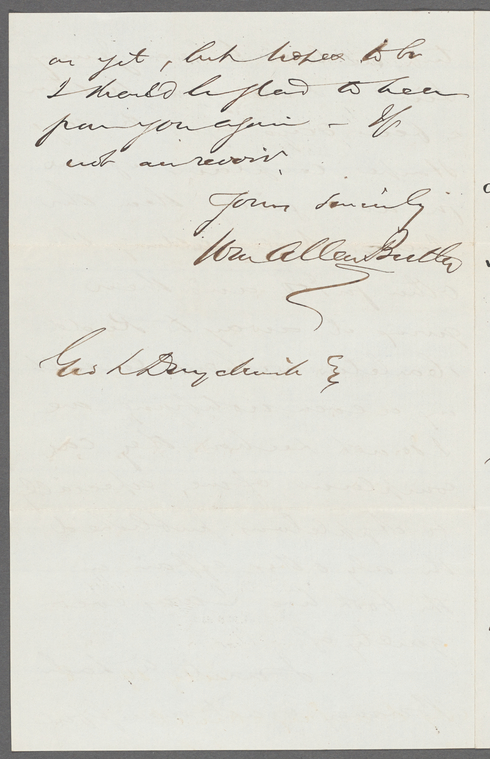 as yet, but hopes to be
I should be glad to hear
from you again - If
not au revoir.
Yours sincerely
Wm Allen Butler
Geo L Duyckinck Esq